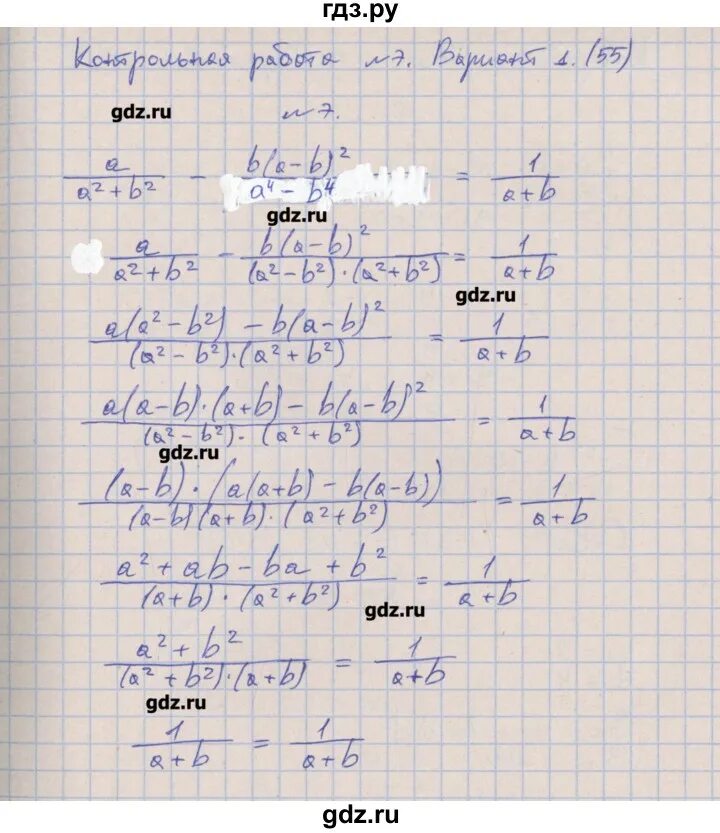 гдз.ру
Контрольная работа №7. Вариант 1. (55)
gdz.ru
№7.
a/(a²+b²) - b(a-b)²/(a⁴-b⁴) = 1/(a+b)
gdz.ru
a/(a²+b²) - b(a-b)²/((a²-b²)·(a²+b²)) = 1/(a+b)
gdz.ru
(a(a²-b²) - b(a-b)²)/((a²-b²)·(a²+b²)) = 1/(a+b)
(a(a-b)·(a+b) - b(a-b)²)/((a²-b²)·(a²+b²)) = 1/(a+b)
gdz.ru
((a-b)·(a(a+b) - b(a-b)))/((a-b)(a+b)·(a²+b²)) = 1/(a+b)
(a²+ab-ba+b²)/((a+b)·(a²+b²)) = 1/(a+b)
gdz.ru
(a²+b²)/((a²+b²)·(a+b)) = 1/(a+b)
gdz.ru
1/(a+b) = 1/(a+b)
gdz.ru